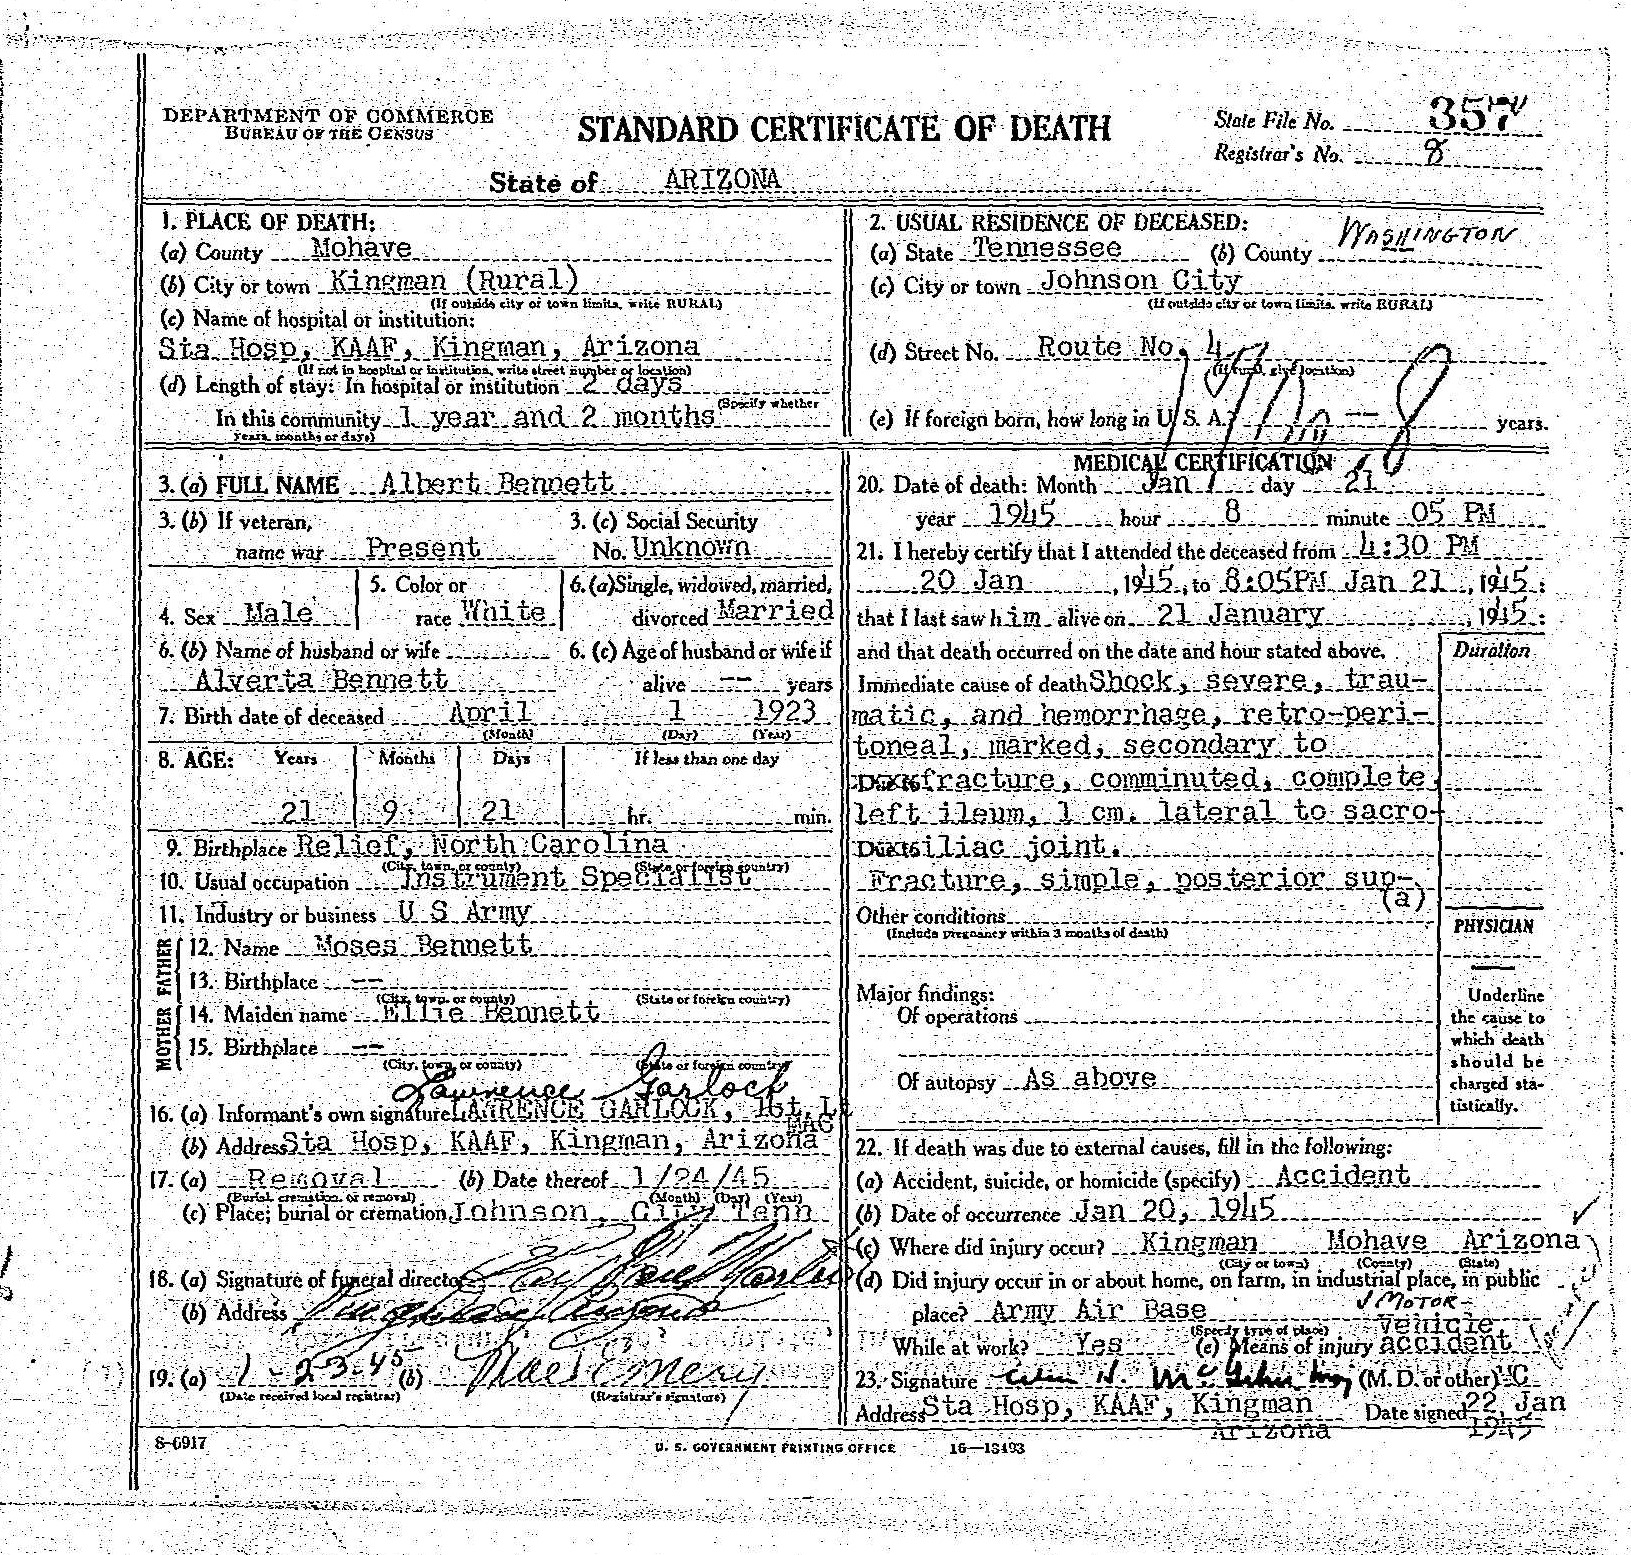 DEPARTMENT OF COMMERCE
BUREAU OF THE CENSUS
STANDARD CERTIFICATE OF DEATH
State File No. 357
Registrar's No. 8
State of ARIZONA
1. PLACE OF DEATH:
(a) County Mohave
(b) City or town Kingman (Rural)
(If outside city or town limits, write RURAL)
(c) Name of hospital or institution:
Sta Hosp, KAAF, Kingman, Arizona
(If not in hospital or institution, write street number or location)
(d) Length of stay: In hospital or institution 2 days
(Specify whether
In this community 1 year and 2 months
years, months or days)
2. USUAL RESIDENCE OF DECEASED:
(a) State Tennessee (b) County WASHINGTON
(c) City or town Johnson City
(If outside city or town limits, write RURAL)
(d) Street No. Route No. 4
(If rural, give location)
(e) If foreign born, how long in U. S. A.? -- years.
3. (a) FULL NAME Albert Bennett
3. (b) If veteran, name war Present
3. (c) Social Security No. Unknown
4. Sex Male
5. Color or race White
6. (a) Single, widowed, married, divorced Married
6. (b) Name of husband or wife
Alverta Bennett
6. (c) Age of husband or wife if alive -- years
7. Birth date of deceased April 1 1923
(Month) (Day) (Year)
8. AGE: Years Months Days If less than one day
21 9 21 hr. min.
9. Birthplace Relief, North Carolina
(City, town, or county) (State or foreign country)
10. Usual occupation Instrument Specialist
11. Industry or business U S Army
FATHER
12. Name Moses Bennett
13. Birthplace --
(City, town, or county) (State or foreign country)
MOTHER
14. Maiden name Ellie Bennett
15. Birthplace --
(City, town, or county) (State or foreign country)
Lawrence Garlock
16. (a) Informant's own signature LAWRENCE GARLOCK, 1st. Lt
MAC
(b) Address Sta Hosp, KAAF, Kingman, Arizona
17. (a) Removal (b) Date thereof 1/24/45
(Burial, cremation, or removal) (Month) (Day) (Year)
(c) Place; burial or cremation Johnson, City Tenn
18. (a) Signature of funeral director
(b) Address
19. (a) 1-23-45 (b) Mae Emery
(Date received local registrar) (Registrar's signature)
MEDICAL CERTIFICATION
20. Date of death: Month Jan day 21
year 1945 hour 8 minute 05 PM
21. I hereby certify that I attended the deceased from 4:30 PM
20 Jan, 1945, to 8:05PM Jan 21, 1945;
that I last saw him alive on 21 January, 1945;
and that death occurred on the date and hour stated above.
Duration
Immediate cause of death Shock, severe, trau-
matic, and hemorrhage, retro-peri-
toneal, marked, secondary to
fracture, comminuted, complete,
left ileum, 1 cm. lateral to sacro-
iliac joint.
Fracture, simple, posterior sup-
(a)
Other conditions
(Include pregnancy within 3 months of death)
PHYSICIAN
Underline the cause to which death should be charged statistically.
Major findings:
Of operations
Of autopsy As above
22. If death was due to external causes, fill in the following:
(a) Accident, suicide, or homicide (specify) Accident
(b) Date of occurrence Jan 20, 1945
(c) Where did injury occur? Kingman Mohave Arizona
(City or town) (County) (State)
(d) Did injury occur in or about home, on farm, in industrial place, in public
place? Army Air Base
(Specify type of place)
MOTOR
vehicle
While at work? Yes (e) Means of injury accident
23. Signature (M. D. or other) MC
Address Sta Hosp, KAAF, Kingman Arizona
Date signed 22 Jan 1945
S-6917
U. S. GOVERNMENT PRINTING OFFICE 16-13493